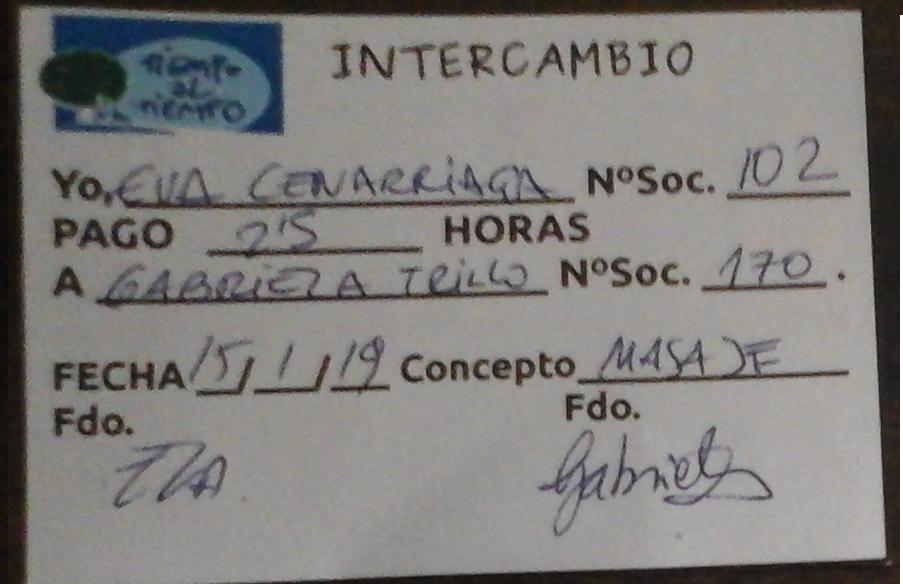 TIEMPO
AL
TIEMPO
INTERCAMBIO
Yo, EVA CENARRIAGA NºSoc. 102
PAGO 2'5 HORAS
A GABRIELA TRILLO NºSoc. 170.
FECHA 15/1/19 Concepto MASAJE
Fdo. Fdo.
EVA Gabriela